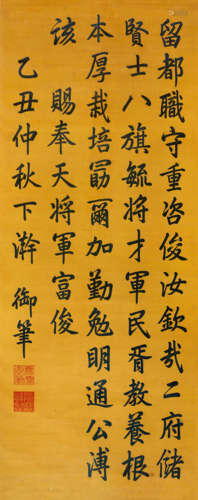 留都職守重咨俊汝欽哉二府儲
賢士八旗毓將才軍民胥教養根
本厚栽培勗爾加勤勉明通公溥
該 賜奉天將軍富俊
乙丑仲秋下澣 御筆